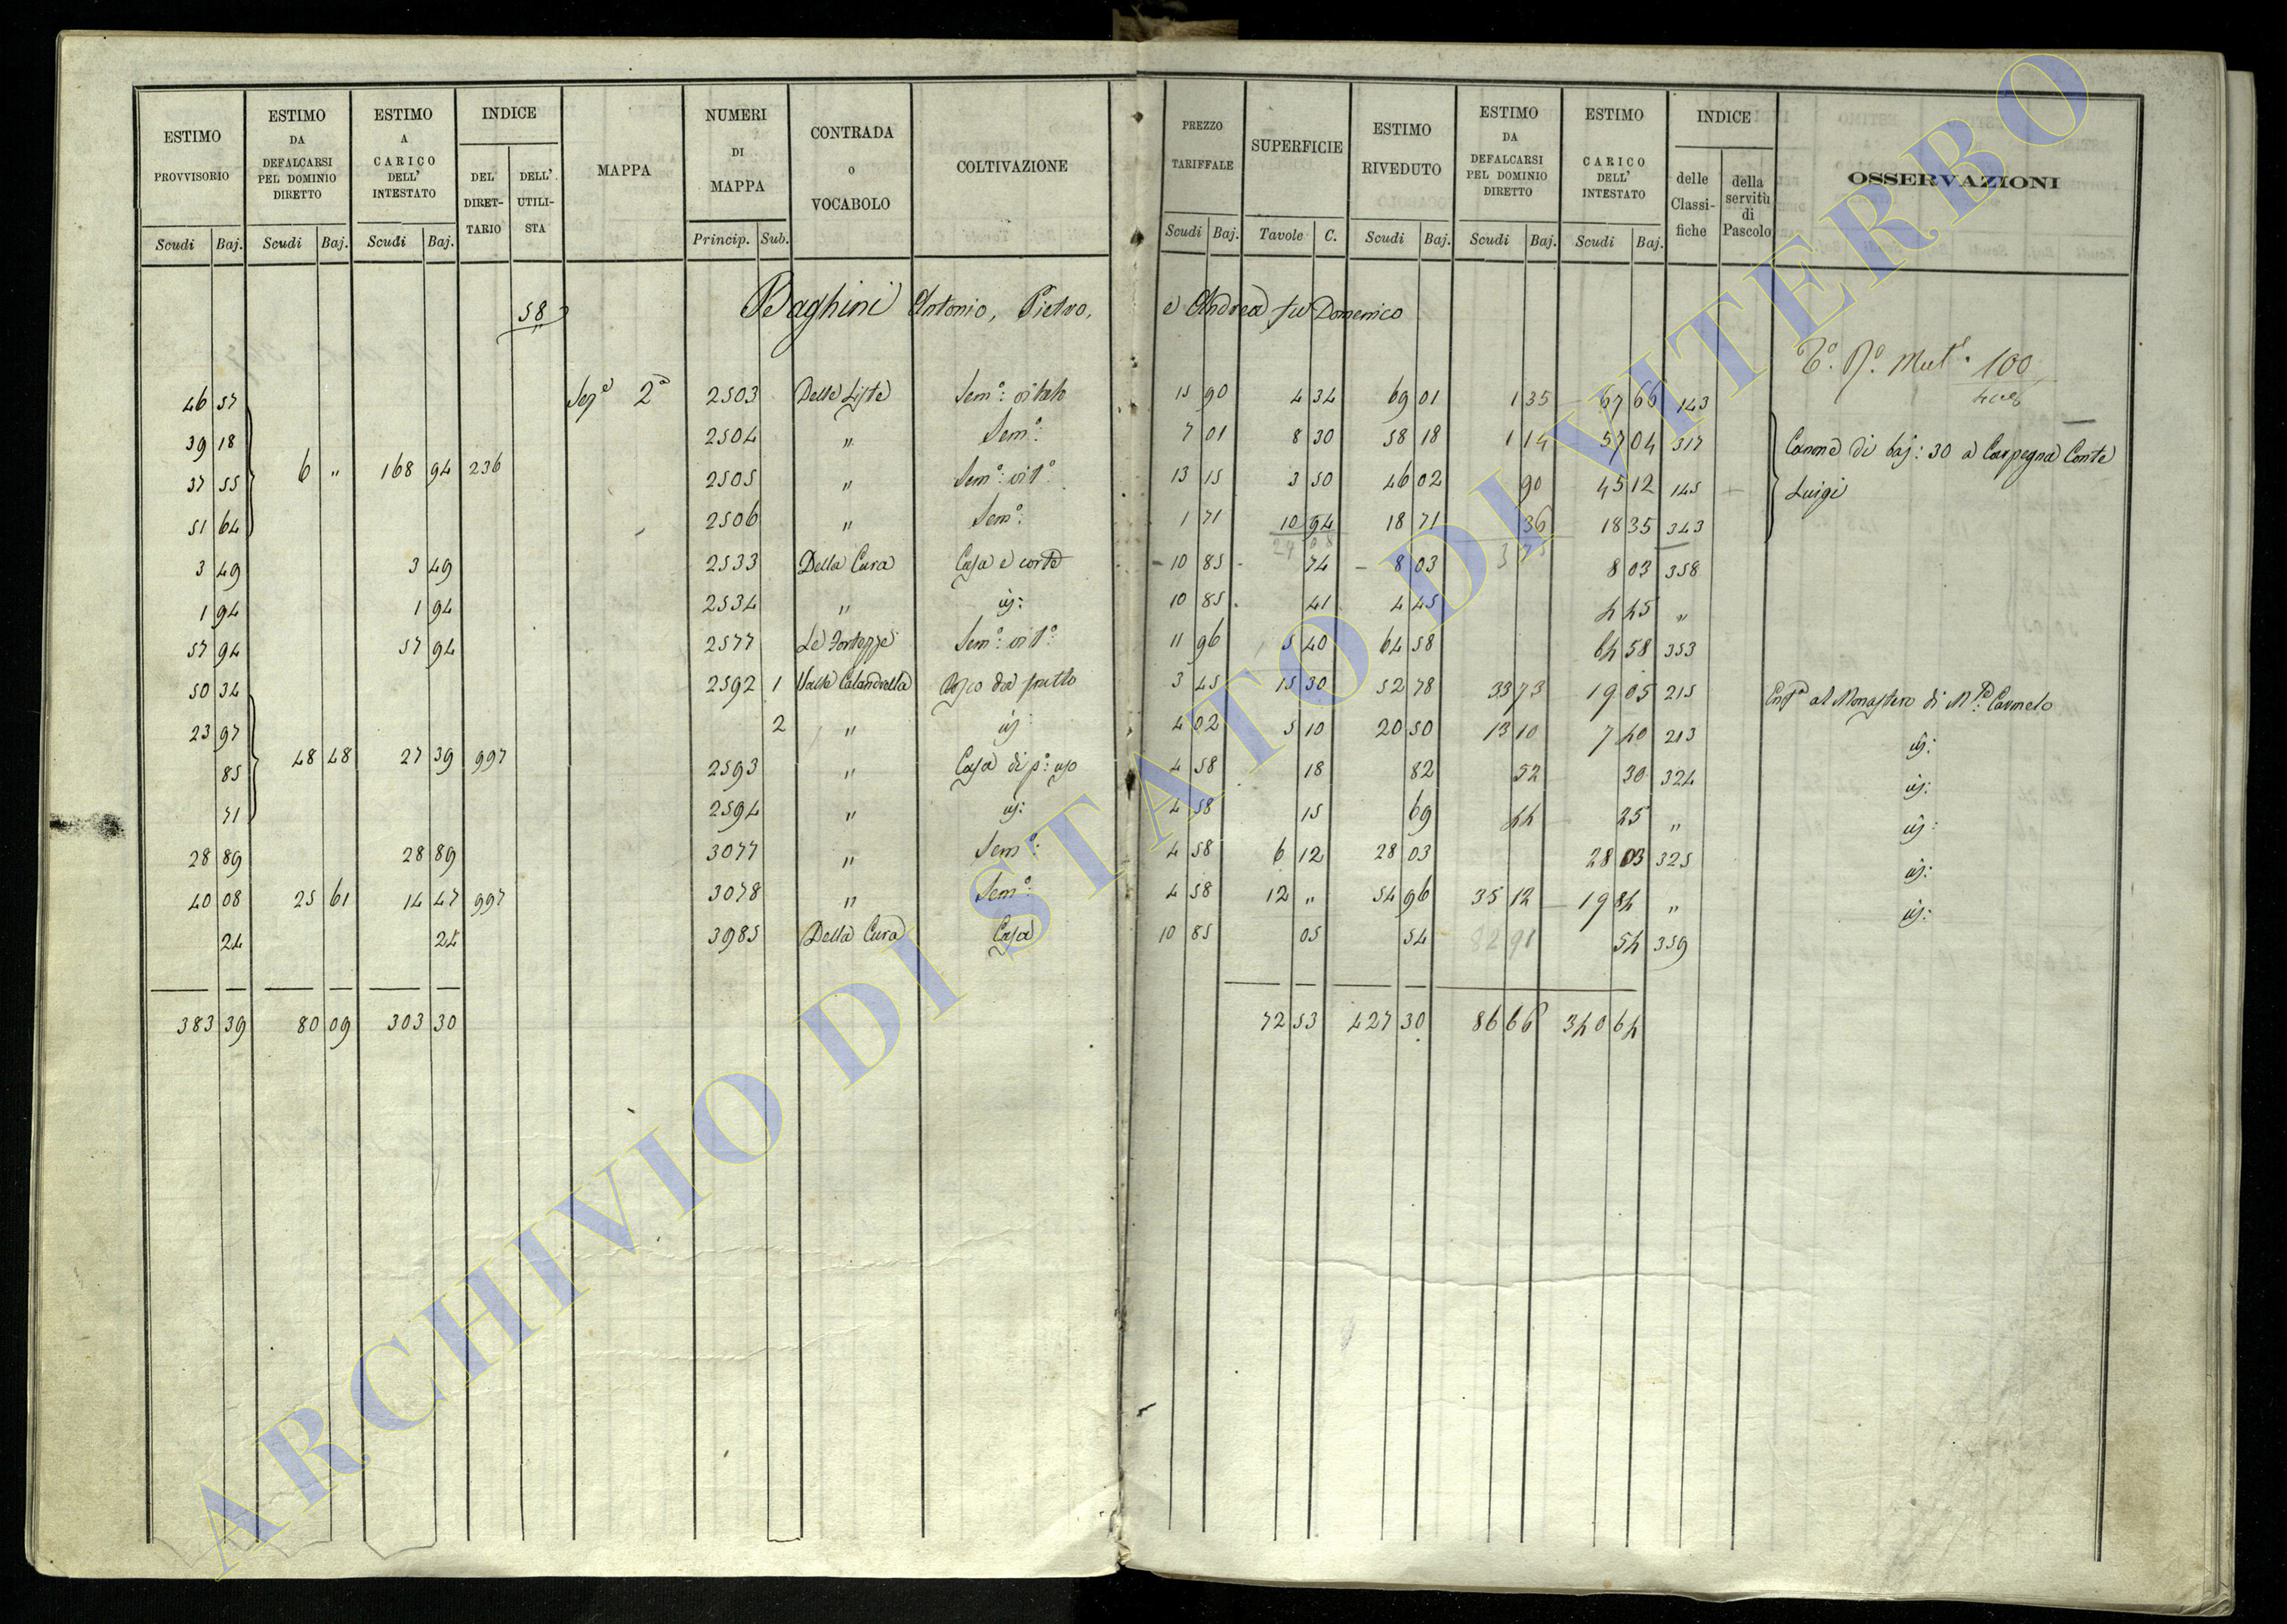 ESTIMO PROVVISORIO | ESTIMO DA DEFALCARSI PEL DOMINIO DIRETTO | ESTIMO A CARICO DELL' INTESTATO | INDICE | MAPPA | NUMERI DI MAPPA | CONTRADA o VOCABOLO | COLTIVAZIONE | PREZZO TARIFFALE | SUPERFICIE | ESTIMO RIVEDUTO | ESTIMO DA DEFALCARSI PEL DOMINIO DIRETTO | ESTIMO CARICO DELL' INTESTATO | INDICE | OSSERVAZIONI
DEL DIRET-TARIO | DELL' UTILI-STA | delle Classi-fiche | della servitù di Pascolo
Scudi | Baj. | Scudi | Baj. | Scudi | Baj. | Princip. | Sub. | Scudi | Baj. | Tavole | C. | Scudi | Baj. | Scudi | Baj. | Scudi | Baj.
58 Baghini Antonio, Pietro, e Andrea fu Domenico
100
46 57 | Sez.e 2a | 2503 | Delle Liste | Sem.o: vitato | 15 90 | 4 34 | 69 01 | 1 35 | 67 66 | 143
39 18 | 2504 | " | Sem.o: | 7 01 | 8 30 | 58 18 | 1 14 | 57 04 | 317 | Canone di baj: 30 a Carpegna Conte
37 55 | 6 " | 168 94 | 236 | 2505 | " | Sem.o: vit.o | 13 15 | 3 50 | 46 02 | 90 | 45 12 | 145 | Luigi
51 64 | 2506 | " | Sem.o: | 1 71 | 10 94 | 18 71 | 36 | 18 35 | 343
3 49 | 3 49 | 2533 | Della Cura | Casa e corte | 10 85 | 74 | 8 03 | 8 03 | 358
1 94 | 1 94 | 2534 | " | id: | 10 85 | 41 | 4 45 | 4 45 | "
57 94 | 57 94 | 2577 | Sem.o: vit.o | 11 96 | 5 40 | 64 58 | 64 58 | 353
50 34 | 2592 | 1 | Valle Calandrella | da frutto | 3 45 | 15 30 | 52 78 | 33 73 | 19 05 | 215 | al Monastero di M.te Carmelo
23 97 | 2 | " | id | 4 02 | 5 10 | 20 50 | 13 10 | 7 40 | 213 | id:
85 | 48 48 | 27 39 | 997 | 2593 | " | Casa di p.o: uso | 4 58 | 18 | 82 | 52 | 30 | 324 | id:
71 | 2594 | " | id: | 4 58 | 15 | 69 | 44 | 25 | " | id:
28 89 | 28 89 | 3077 | " | Sem.o: | 4 58 | 6 12 | 28 03 | 28 03 | 325 | id:
40 08 | 25 61 | 14 47 | 997 | 3078 | " | Sem.o: | 4 58 | 12 " | 54 96 | 35 12 | 19 84 | " | id:
24 | 24 | 3985 | Della Cura | Casa | 10 85 | 05 | 54 | 82 91 | 54 | 359
383 39 | 80 09 | 303 30 | 72 53 | 427 30 | 86 66 | 340 64
ARCHIVIO DI STATO DI VITERBO